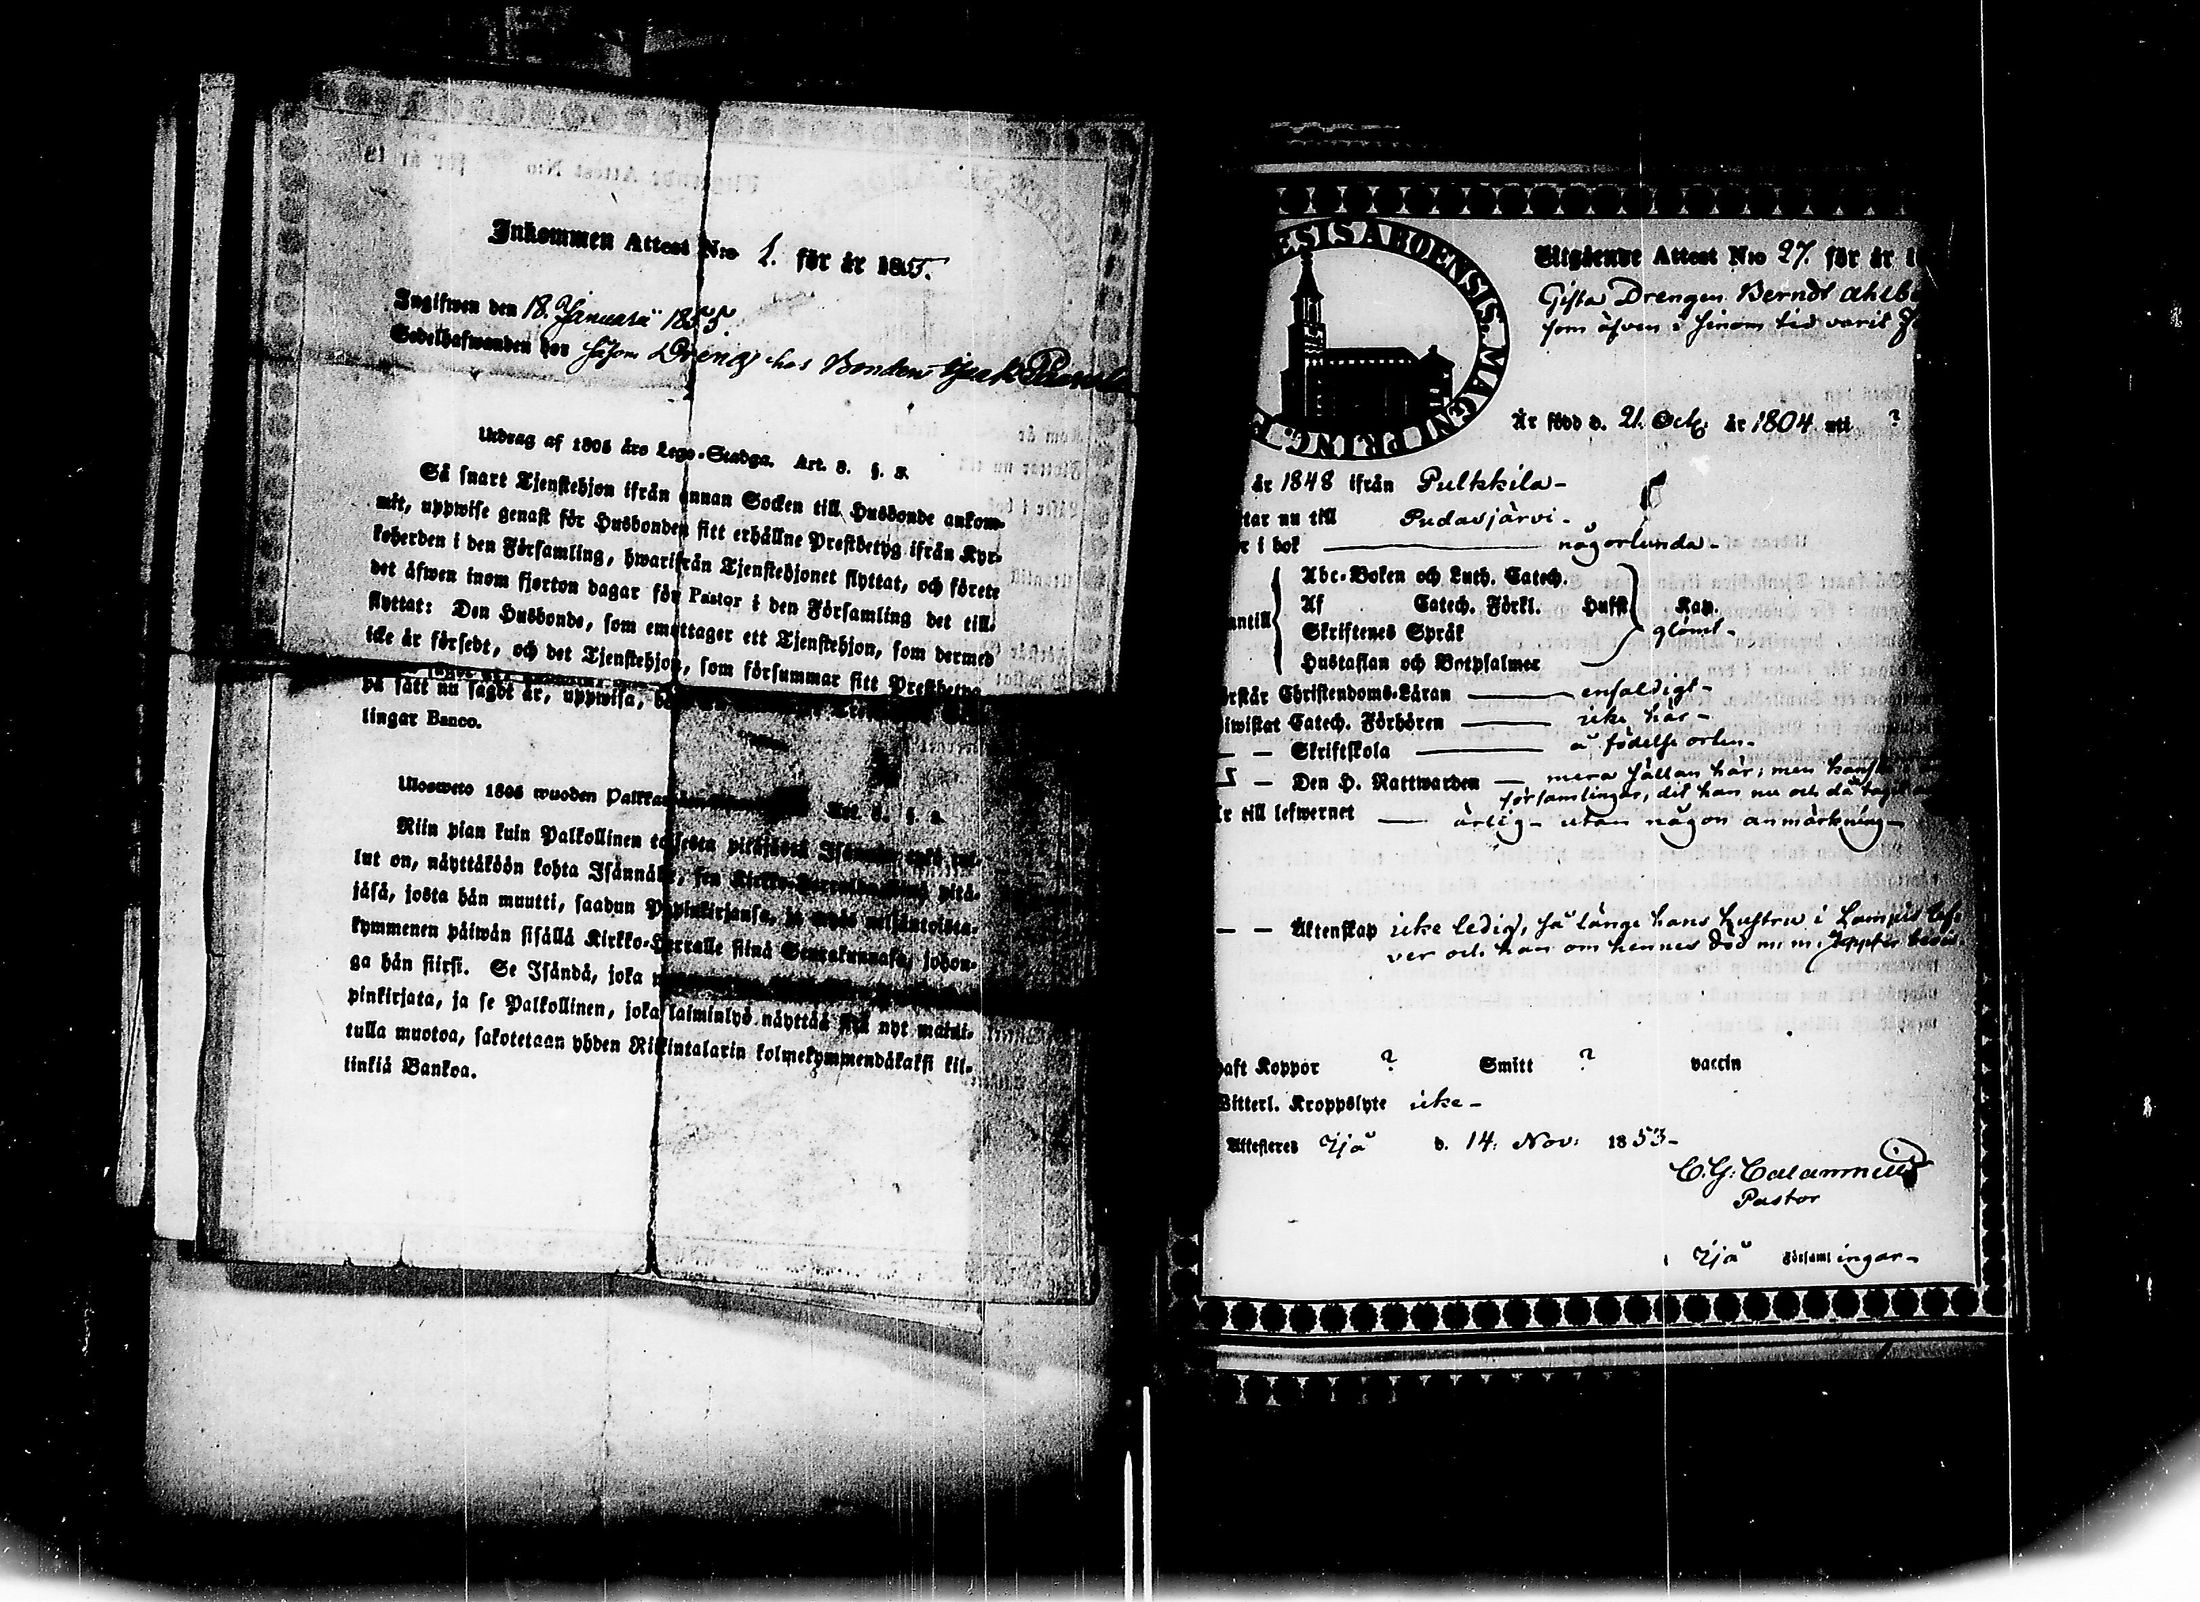 Inkommen Attest N:o 1. för år 1855.
Ingifwen den 18. Januarii 1855.
Sedelhafwanden hos såsom Dreng hos Bonden
Utdrag af 1805 års Lego-Stadga. Art. 3. §. 5.
Så snart Tjenstehjon ifrån annan Socken till Husbonde ankom-
mit, uppwise genast för Husbonden sitt erhållne Prestbetyg ifrån Kyr-
koherden i den Församling, hwarifrån Tjenstehjonet flyttat, och förete
det äfwen inom fjorton dagar för Pastor i den Församling det till-
flyttat: Den Husbonde, som emottager ett Tjenstehjon, som dermed
icke är försedt, och det Tjenstehjon, som försummar sitt Prestbetyg
på sätt nu sagdt är, uppwisa,
lingar Banco.
Ulosweto 1805 wuoden Art. 3. §. 5.
Niin pian kuin Palkollinen toisesta pitäjästä Isännän tykö tul-
lut on, näyttäköön kohta Isännälle, sen Kirkko-Herralda siinä pitä-
jäsä, josta hän muutti, saadun Papinkirjansa, ja myös neljäntoista-
kymmenen päiwän sisällä Kirkko-Herralle siinä Seurakunnasa, johon-
ga hän siirsi. Se Isändä, joka
pinkirjata, ja se Palkollinen, joka laiminlyö näyttää sitä nyt maini-
tulla muotoa, sakotetaan yhden Riikintalarin kolmekymmendäkaksi kil-
linkiä Bankoa.
ESIS ABOENSIS. MAGNI PRING
Utgående Attest N:o 27. för år 1
Gifta Drengen Berndt Ahlb
som äfven i sinom tid varit
Är född d. 21. Oct. år 1804 uti ?
år 1848 ifrån Pulkkila-
ttar nu till Pudasjärvi-
r i bok någorlunda-
Abc-Boken och Luth. Catech.
Af Catech. Förkl. Husfl Kap.
nantill Skriftenes Språk glömt-
Hustaflan och Botpsalmer
rstår Christendoms-Läran enfaldigt-
iwistat Catech. Förhören icke här-
— — Skriftskola å födelse orten-
— Den H. Nattwarden — mera sällan här; men
församlingar, dit han nu och då tagit
r till lefwernet — ärlig- utan någon anmärkning-
— — Äktenskap icke ledig, så länge hans hustru i lef-
ver och han om hennes död m.m.
haft Koppor ? Smitt ? vaccin
Witterl. Kroppslyte icke-
Attesteres Ijå d. 14. Nov: 1853-
C. G: Calamnius
Pastor
i Ijå Församlingar-